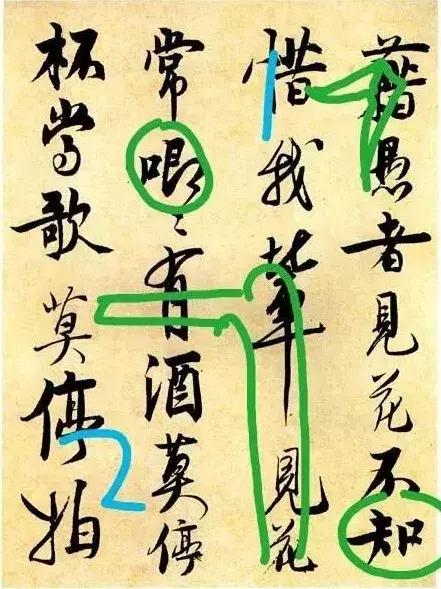 藉愚者見花不知
惜我輩見花
常唧〻有酒莫停
杯當歌莫停拍
1
2